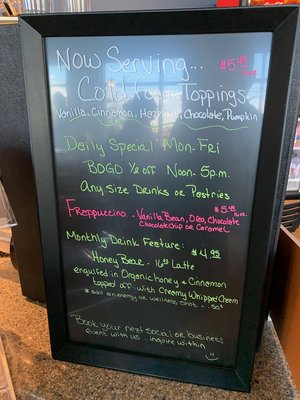 Now Serving...
Cold Foam Toppings
$5.49
16oz.
Vanilla, Cinnamon, Hazelnut, Chocolate, Pumpkin
Daily Special Mon-Fri
BOGO 1/2 off Noon-5p.m.
Any Size Drinks or Pastries
Frappuccino - Vanilla Bean, Oreo, Chocolate
$5.49 16oz.
Chocolate Chip or Caramel
Monthly Drink Feature: $4.99
Honey Bear - 16oz Latte
engulfed in Organic honey & Cinnamon
topped off with Creamy Whipped Cream
* add an energy or wellness shot - .50¢
Book your next social or business
event with us... inquire within